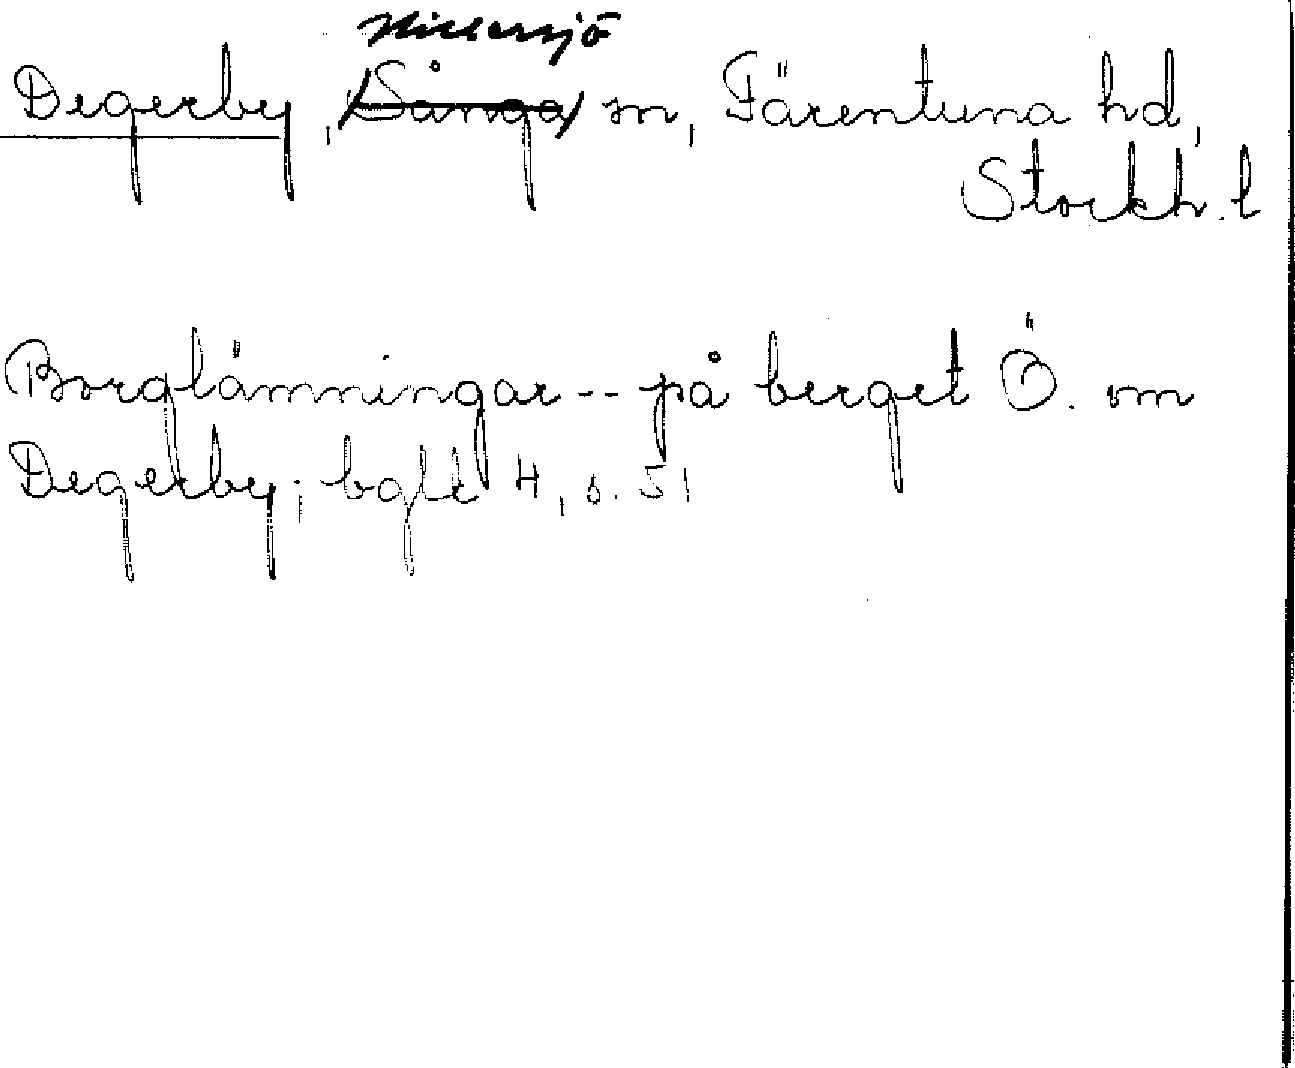 Hillersjö
Degerby, Sånga sn, Färentuna hd,
Stockh. l
Borglämningar -- på berget Ö. om
Degerby; bgll 4, s. 51